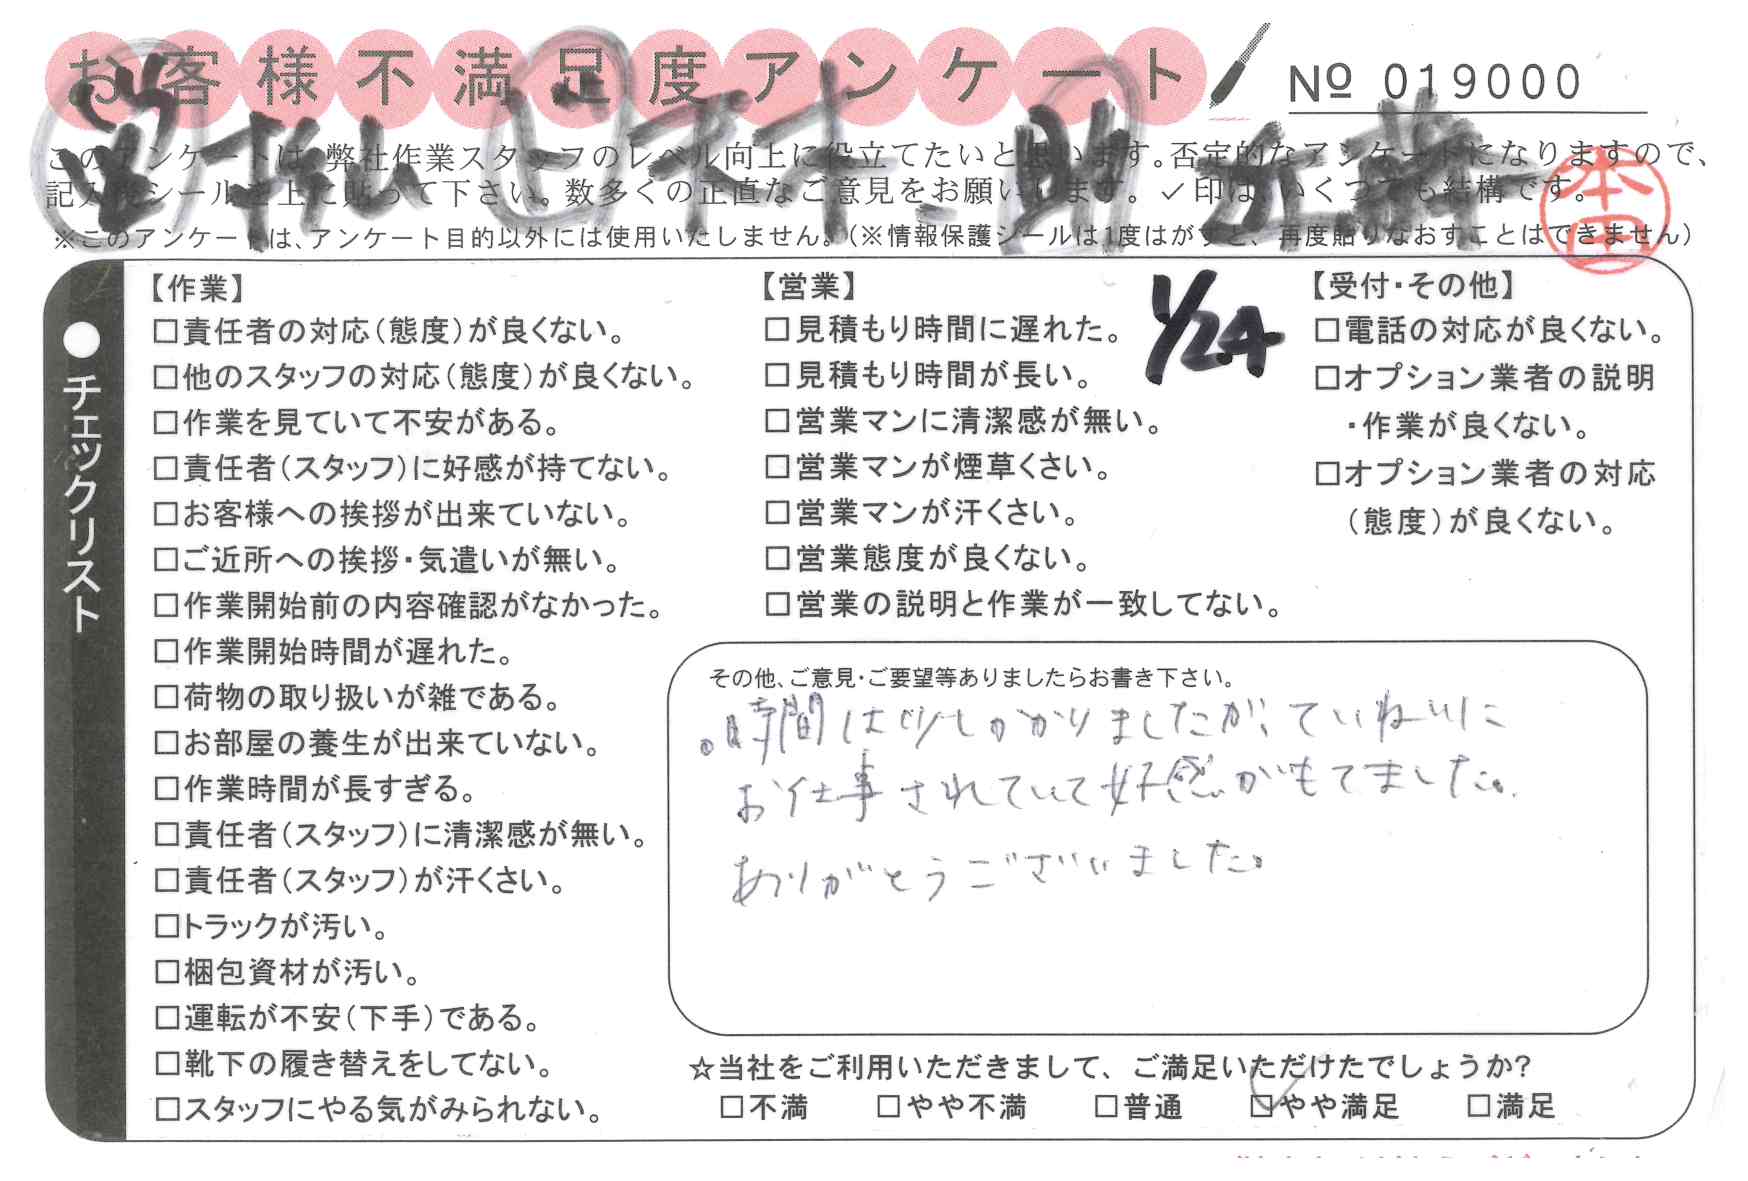 お客様不満足度アンケート
№ 019000
このアンケートは、弊社作業スタッフのレベル向上に役立てたいと思います。否定的なアンケートになりますので、
記入後シールを上に貼って下さい。数多くの正直なご意見をお願いします。✓印は、いくつでも結構です。
※このアンケートは、アンケート目的以外には使用いたしません。(※情報保護シールは1度はがすと、再度貼りなおすことはできません)
本田
1/24
●チェックリスト
【作業】
□責任者の対応(態度)が良くない。
□他のスタッフの対応(態度)が良くない。
□作業を見ていて不安がある。
□責任者(スタッフ)に好感が持てない。
□お客様への挨拶が出来ていない。
□ご近所への挨拶・気遣いが無い。
□作業開始前の内容確認がなかった。
□作業開始時間が遅れた。
□荷物の取り扱いが雑である。
□お部屋の養生が出来ていない。
□作業時間が長すぎる。
□責任者(スタッフ)に清潔感が無い。
□責任者(スタッフ)が汗くさい。
□トラックが汚い。
□梱包資材が汚い。
□運転が不安(下手)である。
□靴下の履き替えをしてない。
□スタッフにやる気がみられない。
【営業】
□見積もり時間に遅れた。
□見積もり時間が長い。
□営業マンに清潔感が無い。
□営業マンが煙草くさい。
□営業マンが汗くさい。
□営業態度が良くない。
□営業の説明と作業が一致してない。
【受付・その他】
□電話の対応が良くない。
□オプション業者の説明
・作業が良くない。
□オプション業者の対応
(態度)が良くない。
その他、ご意見・ご要望等ありましたらお書き下さい。
。時間は少しかかりましたが、ていねいに
お仕事されていて好感がもてました。
ありがとうございました。
☆当社をご利用いただきまして、ご満足いただけたでしょうか?
□不満 □やや不満 □普通 ☑やや満足 □満足